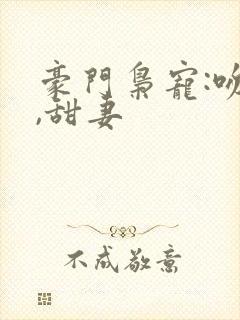 豪門梟寵:吻
,甜妻
不成敬意